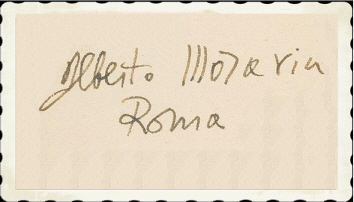 Alberto Moravia
Roma